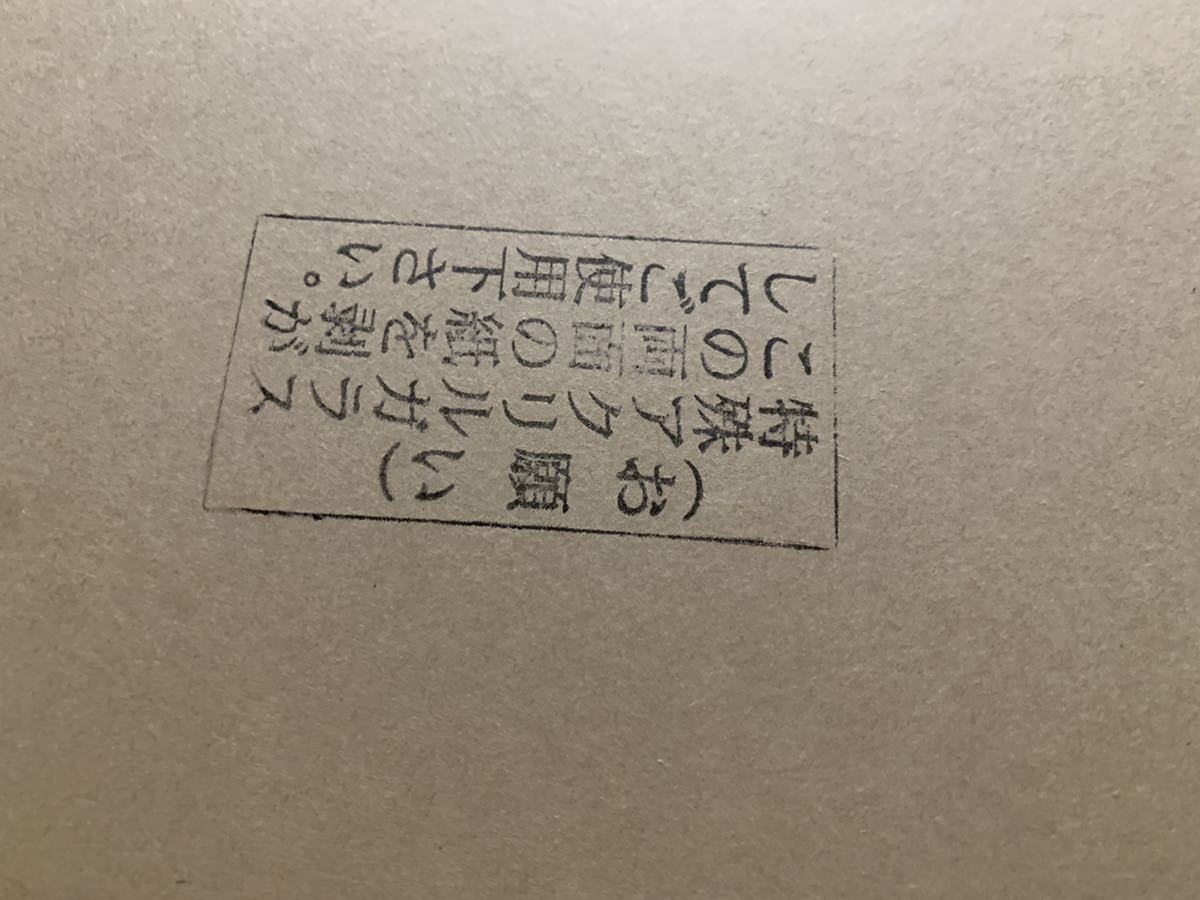 (お願い)
特殊アクリルガラス
この両面の紙を剥が
してご使用下さい。